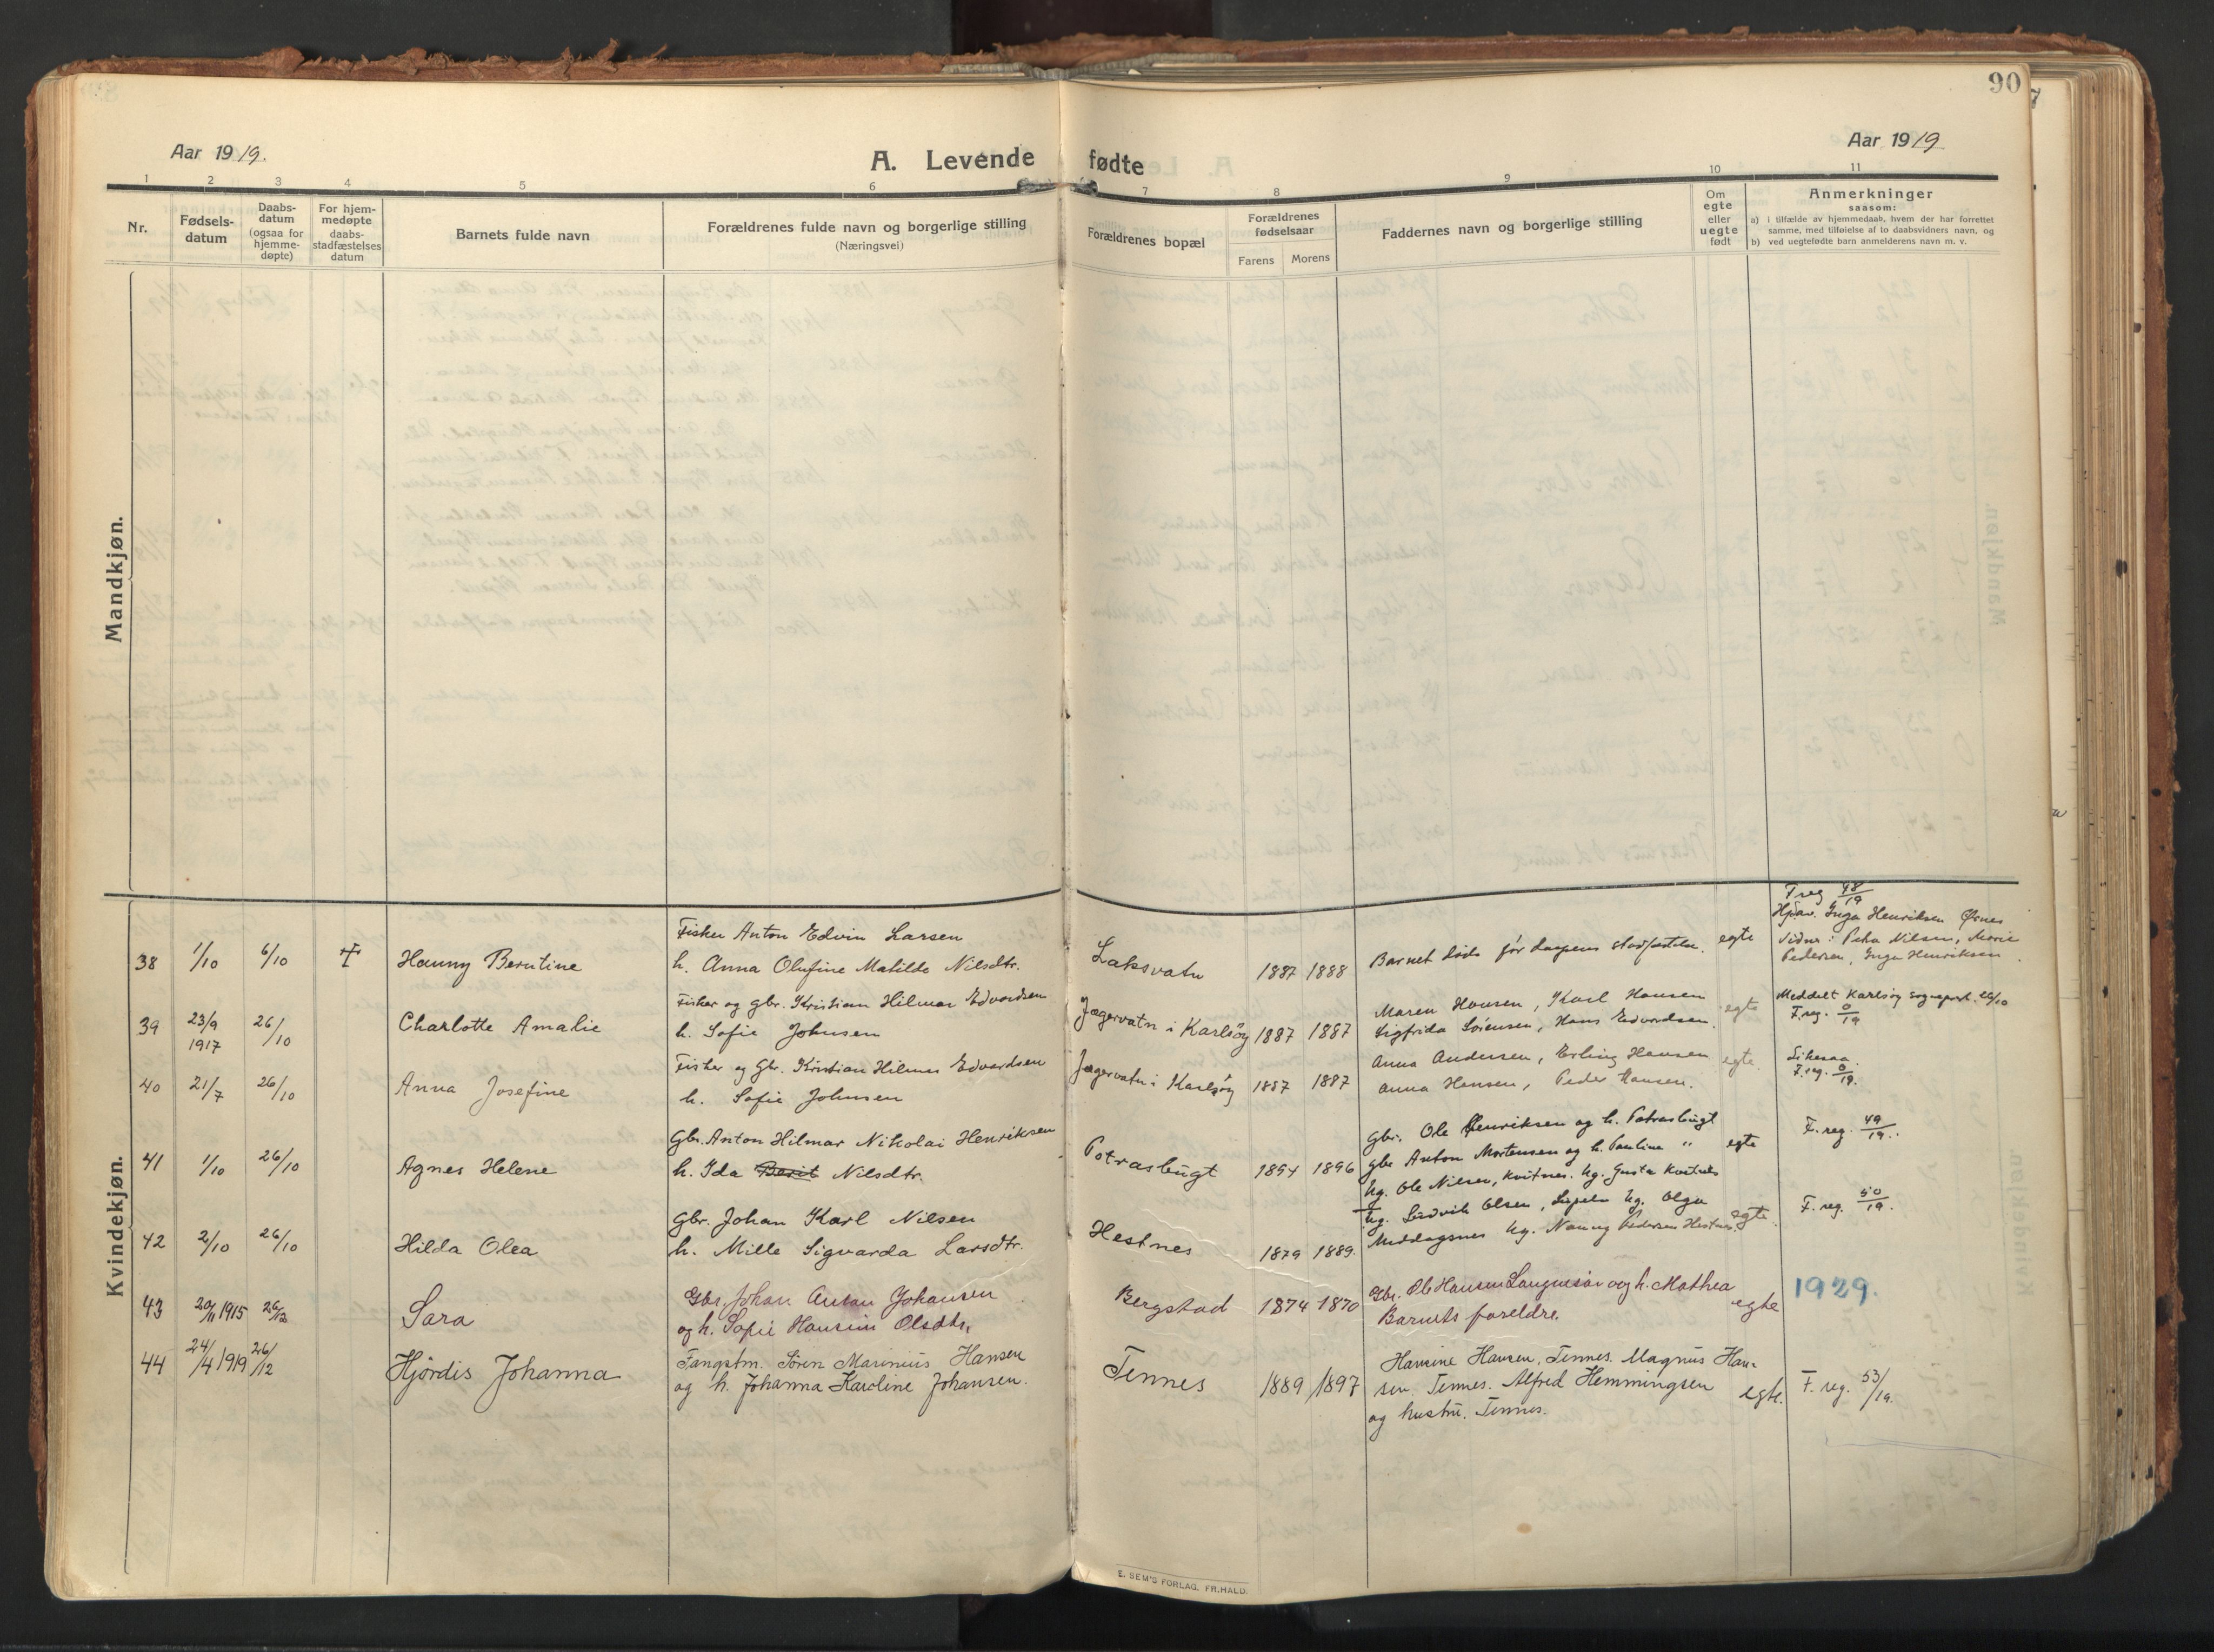 90
Aar 1919.
A. Levende fødte
Aar 1919
1 2 3 4 5 6 7 8 9 10 11
Nr.
Fødsels-
datum
Daabs-
datum
(ogsaa for
hjemme-
døpte)
For hjem-
medøpte
daabs-
stadfæstelses
datum
Barnets fulde navn
Forældrenes fulde navn og borgerlige stilling
(Næringsvei)
Forældrenes bopæl
Forældrenes
fødselsaar
Farens Morens
Faddernes navn og borgerlige stilling
Om
egte
eller
uegte
født
Anmerkninger
saasom:
a) i tilfælde av hjemmedaab, hvem der har forrettet
samme, med tilføielse af to daabsvidners navn, og
b) ved uegtefødte barn anmelderens navn m. v.
Mandkjøn.
Kvindekjøn.
38 1/10 6/10 Hanny Berntine
Fisker Anton Edvin Larsen
h. Anna Olufine Matilde Nilsdtr.
Laksvatn 1887 1888
Barnet døde før daapens stadfæstelse. egte
F. reg 48/19
Hj.av. Inga Henriksen Øsnes
Vidner: Peha Nilsen, Marie
Pedersen, Inga Henriksen.
39 23/9 1917 26/10 Charlotte Amalie
Fisker og gbr. Kristian Hilmar Edvardsen
h. Sofie Johnsen
Jægervatn i Karlsøy 1887 1887
Maren Hansen, Karl Hansen
Sigfrida Sørensen, Hans Edvardsen. egte
Meddelt Karlsøy sogneprest. 26/10
F. reg. 0/19
40 21/7 26/10 Anna Josefine
Fisker og Gbr. Kristian Hilmar Edvardsen
h. Sofie Johnsen
Jægervatn i Karlsøy 1887 1887
Anna Andersen, Erling Hansen
Anna Hansen, Peder Hansen. egte.
Likesaa.
F. reg. 0/19.
41 1/10 26/10 Agnes Helene
Gbr. Anton Hilmar Nikolai Henriksen
h. Ida Berit Nilsdtr.
Potrasbugt 1894 1896
Gbr. Ole Henriksen og h. Potrasbugt
Gbr Anton Mortensen og h. Pauline "
Ug. Ole Nilsen, Kvitnes. Ug. Gusta Kvitnes
egte
F. reg. 49/19.
42 2/10 26/10 Hilda Olea
Gbr. Johan Karl Nilsen
h. Mille Sigvarda Larsdtr.
Hestnes 1879 1889.
Ug. Ludvik Olsen, Ug. Olga
Middagsnes Ug. Nanny Pedersen Hestnes. egte.
F. reg. 50/19.
43 20/11 1915 26/12 Sara
Gbr. Johan Anton Johansen
og h. Sofie Hansine Olsdtr.
Bergstad 1874 1870
Gbr. Ole Hansen Langnesør og h. Mathea
Barnets foreldre. egte
1929.
44 24/4 1919 26/12 Hjørdis Johanna
Fangstm. Søren Marinius Hansen
og h. Johanna Karoline Johansen.
Tennes 1889 1897
Hansine Hansen, Tennes. Magnus Han-
sen. Tennes. Alfred Hemmingsen
og hustru. Tennes.
egte.
F. reg. 53/19.
E. SEM'S FORLAG. FR.HALD.